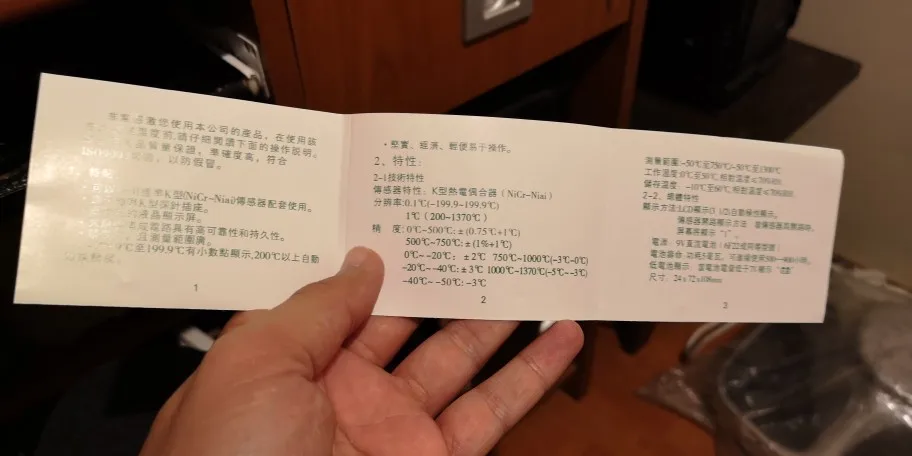 您使用本公司的產品，在使用該
溫度 請仔細閱讀下面的操作說明。
品質量保證，準確度高，符合
ISO 以防假冒。
K型(NiCr-Niai)傳感器配套使用。
K型探針插座。
的液晶顯示屏。
集成電路具有高可靠性和持久性。
且測量範圍廣。
至199.9℃有小數點顯示,200℃以上自動
1
·堅實、經濟、輕便易于操作。
2、特性：
2-1技術特性
傳感器特性：K型熱電偶合器（NiCr-Niai）
分辨率:0.1℃(-199.9~199.9℃)
1℃（200~1370℃）
精 度:0℃~500℃：±(0.75℃+1℃)
500℃~750℃：±(1%+1℃)
0℃~-20℃：±2℃ 750℃~1000℃(-3℃~0℃)
-20℃~-40℃:±3℃ 1000℃~1370℃(-5℃~-3℃)
-40℃~-50℃:-3℃
2
測量範圍:-50℃至750℃/-50℃至1300℃
工作溫度:0℃至50℃,相對溫度≤70%RH.
儲存溫度：-10℃至60℃,相對溫度≤70%RH.
2-2、媒體特性
顯示方法:LCD顯示(3 1/2)自動極性顯示。
傳感器開路顯示方法：當傳感器爲開路時，
屏幕顯示“1”。
電源：9V直流電池（6F22或同等型號）
電池壽命:功耗5毫瓦，可連續使用300~400小時。
低電池顯示：當電池電量低于7V顯示
尺寸：24x72x108mm
3